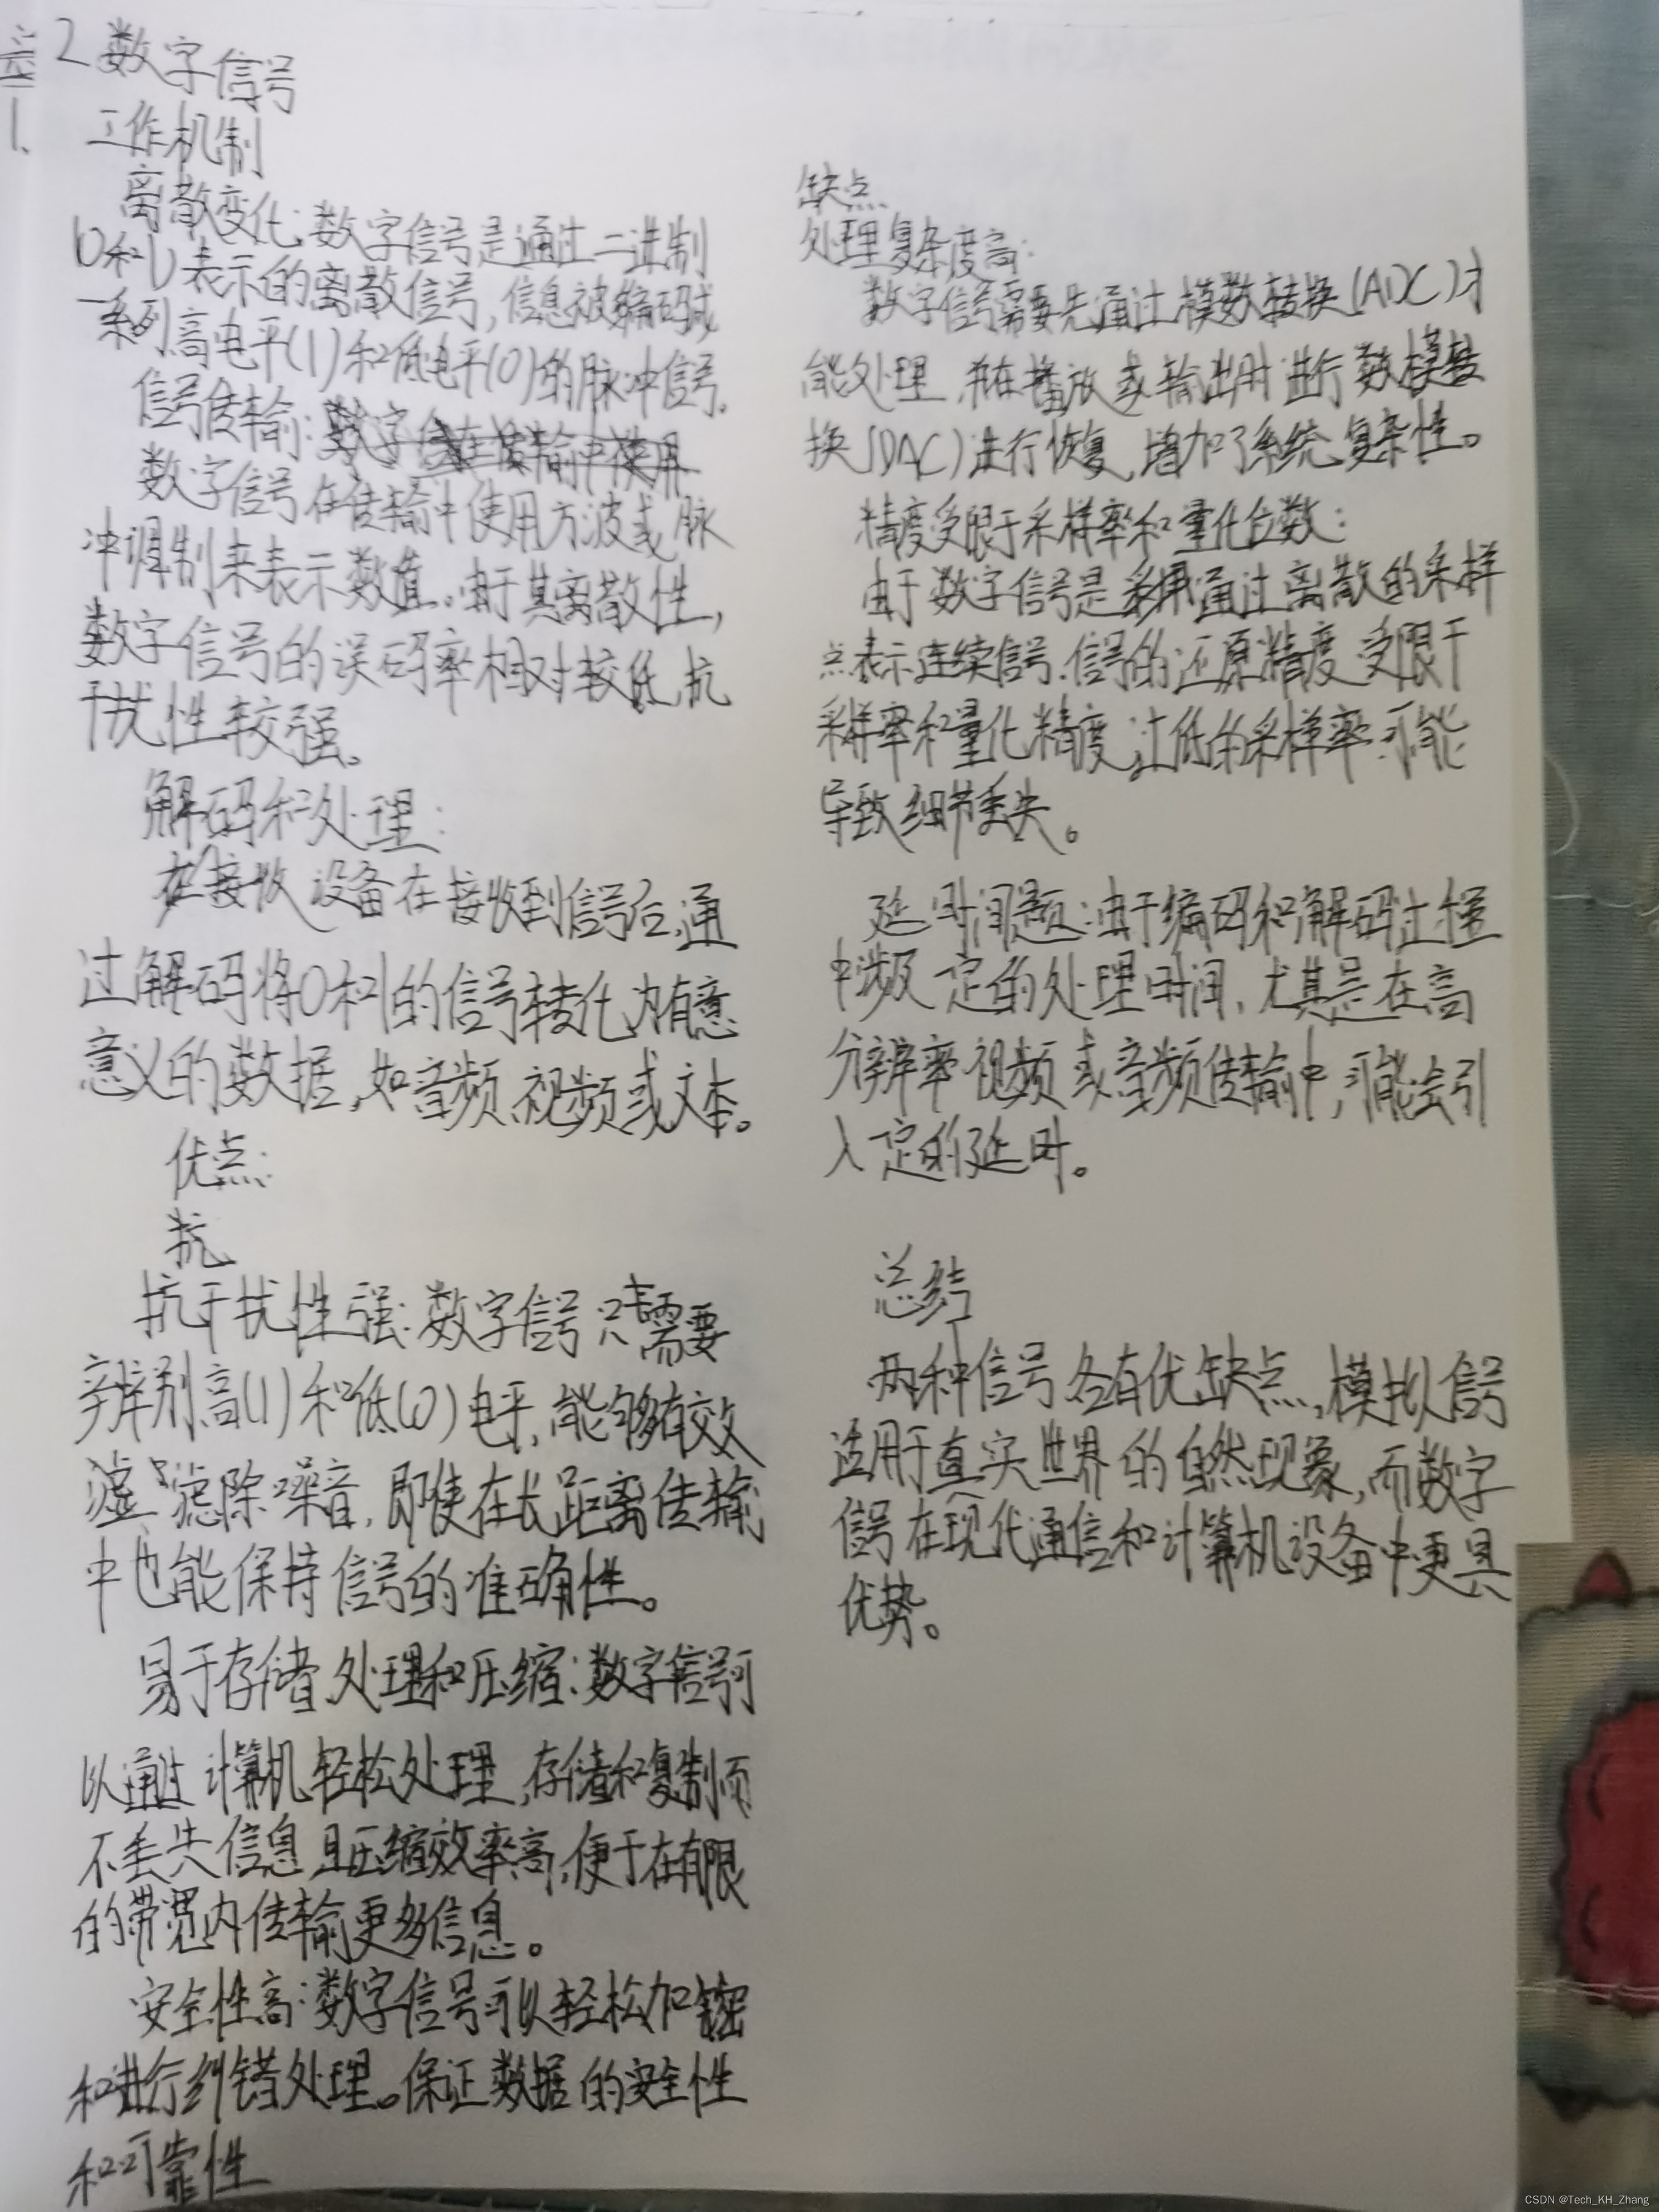 2 数字信号
1.
工作机制
离散变化:数字信号是通过二进制
(0和1)表示的离散信号,信息被编码成
一系列高电平(1)和低电平(0)的脉冲信号。
信号传输:
数字信号在传输中使用方波或脉
冲调制来表示数值。由于其离散性,
数字信号的误码率相对较低,抗
干扰性较强。
解码和处理:
在接收设备在接收到信号后,通
过解码将0和1的信号转化为有意
意义的数据,如音频、视频或文本。
优点:
抗
抗干扰性强:数字信号只需要
辨别高(1)和低(0)电平,能够有效
滤除噪音,即使在长距离传输
中也能保持信号的准确性。
易于存储处理和压缩:数字信号可
以通过计算机轻松处理,存储和复制而
不丢失信息且压缩效率高,便于在有限
的带宽内传输更多信息。
安全性高:数字信号可以轻松加密
和进行纠错处理。保证数据的安全性
和可靠性
缺点
处理复杂度高:
数字信号需要先通过模数转换(ADC)才
能处理,并在播放或输出时进行数模转
换(DAC)进行恢复,增加了系统复杂性。
精度受限于采样率和量化位数:
由于数字信号是通过离散的采样
点表示连续信号,信号的还原精度受限于
采样率和量化精度,过低的采样率可能
导致细节丢失。
延时问题:由于编码和解码过程
中涉及一定的处理时间,尤其是在高
分辨率视频或音频传输中,可能会引
入一定的延时。
总结
两种信号各有优缺点,模拟信号
适用于真实世界的自然现象,而数字
信号在现代通信和计算机设备中更具
优势。
CSDN @Tech_KH_Zhang